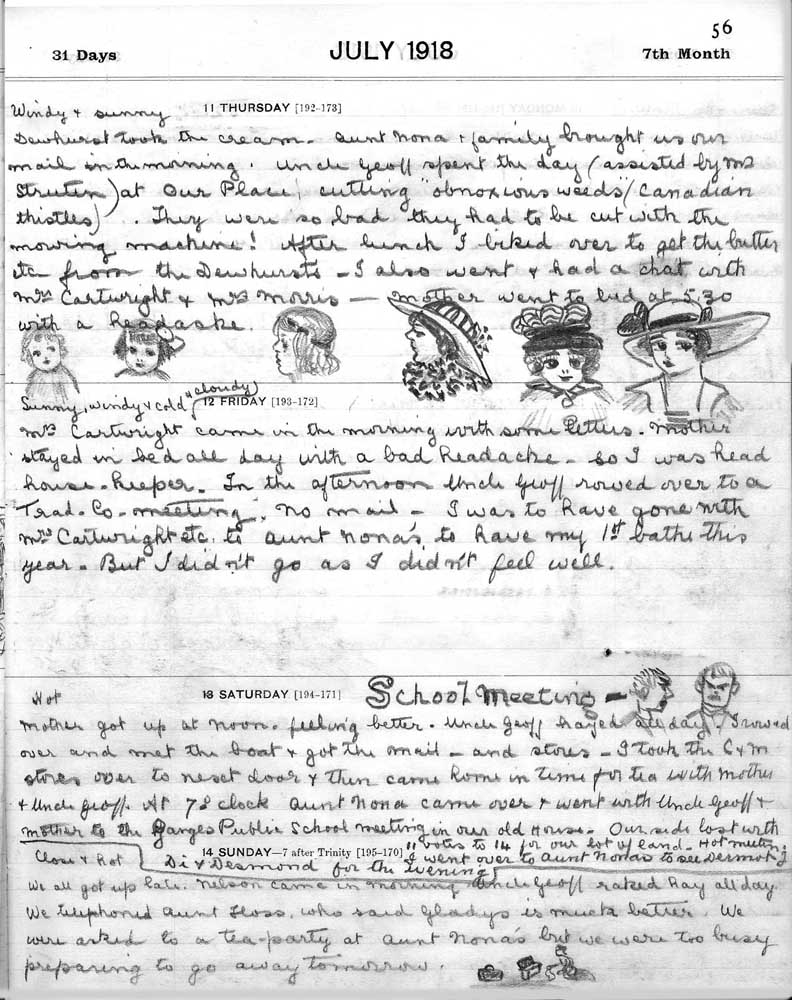 56
31 Days JULY 1918 7th Month
Windy & sunny 11 THURSDAY [192-173]
Dewhurst took the cream. Aunt Nona & family brought us our
mail in the morning. Uncle Geoff spent the day (assisted by Mr
) at Our Place, cutting "obnoxious weeds" (Canadian
thistles). They were so bad they had to be cut with the
mowing machine! After lunch I biked over to get the butter
etc from the Dewhursts - I also went & had a chat with
Mrs Cartwright & Mrs Morris — Mother went to bed at 5.30
with a headache.
Sunny, windy & cold & cloudy 12 FRIDAY [193-172]
Mrs Cartwright came in the morning with some letters. Mother
stayed in bed all day with a bad headache - so I was head
house-keeper. In the afternoon Uncle Geoff rowed over to a
Trad. Co. meeting, no mail - I was to have gone with
Mrs Cartwright etc. to Aunt Nona's to have my 1st bathe this
year. But I didn't go as I didn't feel well.
Hot 13 SATURDAY [194-171] School Meeting -
Mother got up at noon. feeling better. Uncle Geoff hayed all day. I rowed
over and met the boat & got the mail - and stores - I took the C & M
stores over to next door & then came home in time for tea with Mother
& Uncle Geoff. At 7 o'clock Aunt Nona came over & went with Uncle Geoff &
Mother to the Ganges Public School meeting in our old House. Our side lost with
11 votes to 14 for our lot of land - Hot meeting.
14 SUNDAY—7 after Trinity [195-170] I went over to Aunt Nona's to see Dermot J
Close & hot Di & Desmond for the evening
We all got up late. Nelson came in morning Uncle Geoff raked hay all day.
We telephoned Aunt Floss, who said Gladys is much better. We
were asked to a tea-party at Aunt Nona's but we were too busy
preparing to go away tomorrow.